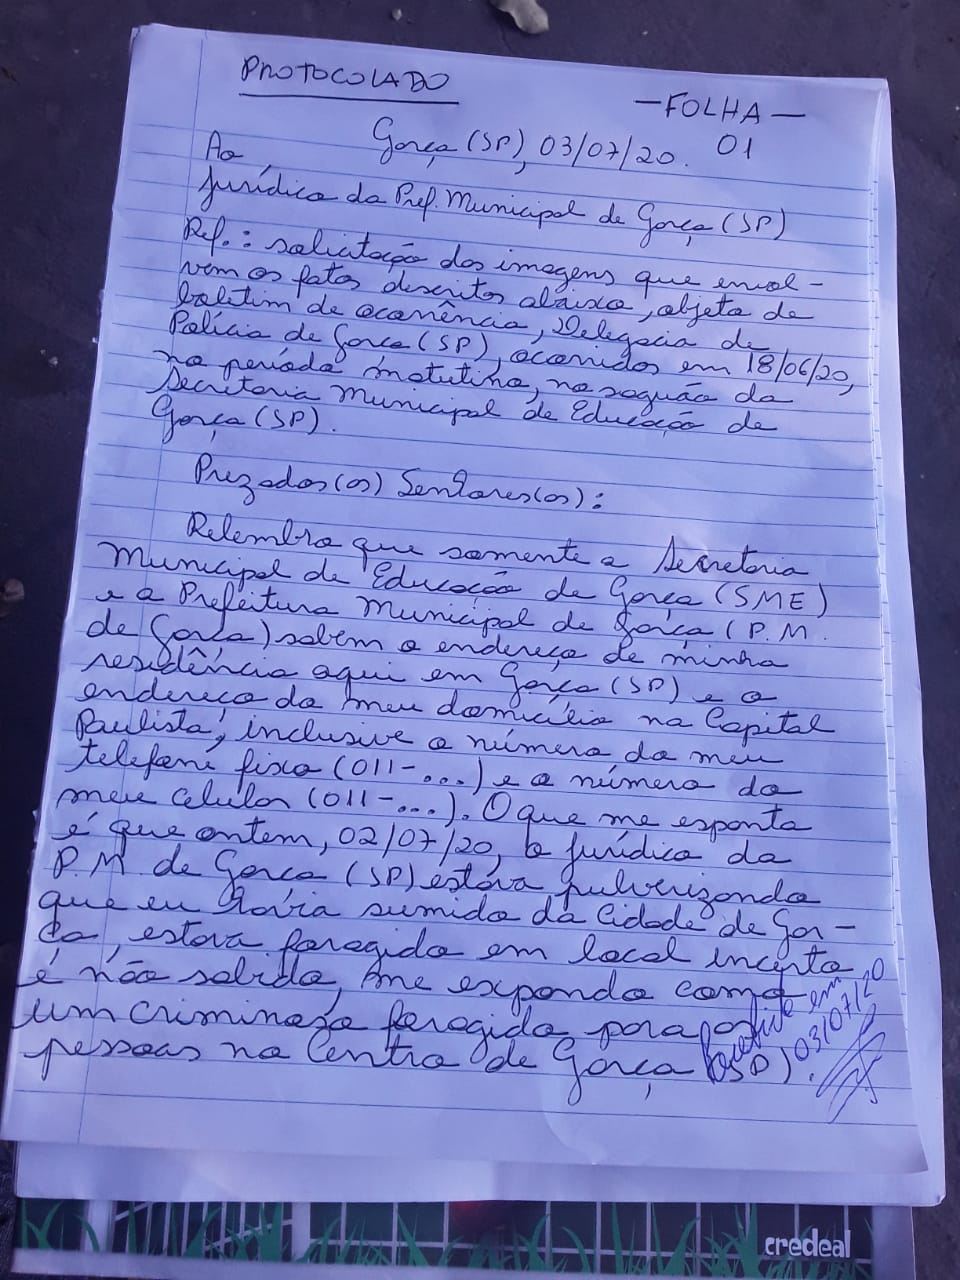 PROTOCOLADO
—FOLHA—
01
Garça (SP), 03/07/20.
Ao
Jurídico da Pref. Municipal de Garça (SP)
Ref.: solicitação das imagens que envol-
vem os fatos descritos abaixo, objeto de
boletim de ocorrência, Delegacia de
Polícia de Garça (SP), ocorridos em 18/06/20,
no período matutino, no saguão da
Secretaria Municipal de Educação de
Garça (SP).
Prezados(as) Senhores(as):
Relembro que somente a Secretaria
Municipal de Educação de Garça (SME)
e a Prefeitura Municipal de Garça (P.M.
de Garça) sabem o endereço de minha
residência aqui em Garça (SP) e o
endereço do meu domicílio na Capital
Paulista, inclusive o número do meu
telefone fixo (011-...) e o número do
meu celular (011-...). O que me espanta
é que ontem, 02/07/20, o Jurídico da
P.M. de Garça (SP) estava pulverizando
que eu havia sumido da Cidade de Gar-
ça, estava foragido em local incerto
e não sabido, me expondo como
um criminoso foragido para as
pessoas no Centro de Garça (SP).
Recebido em
03/07/20
credeal